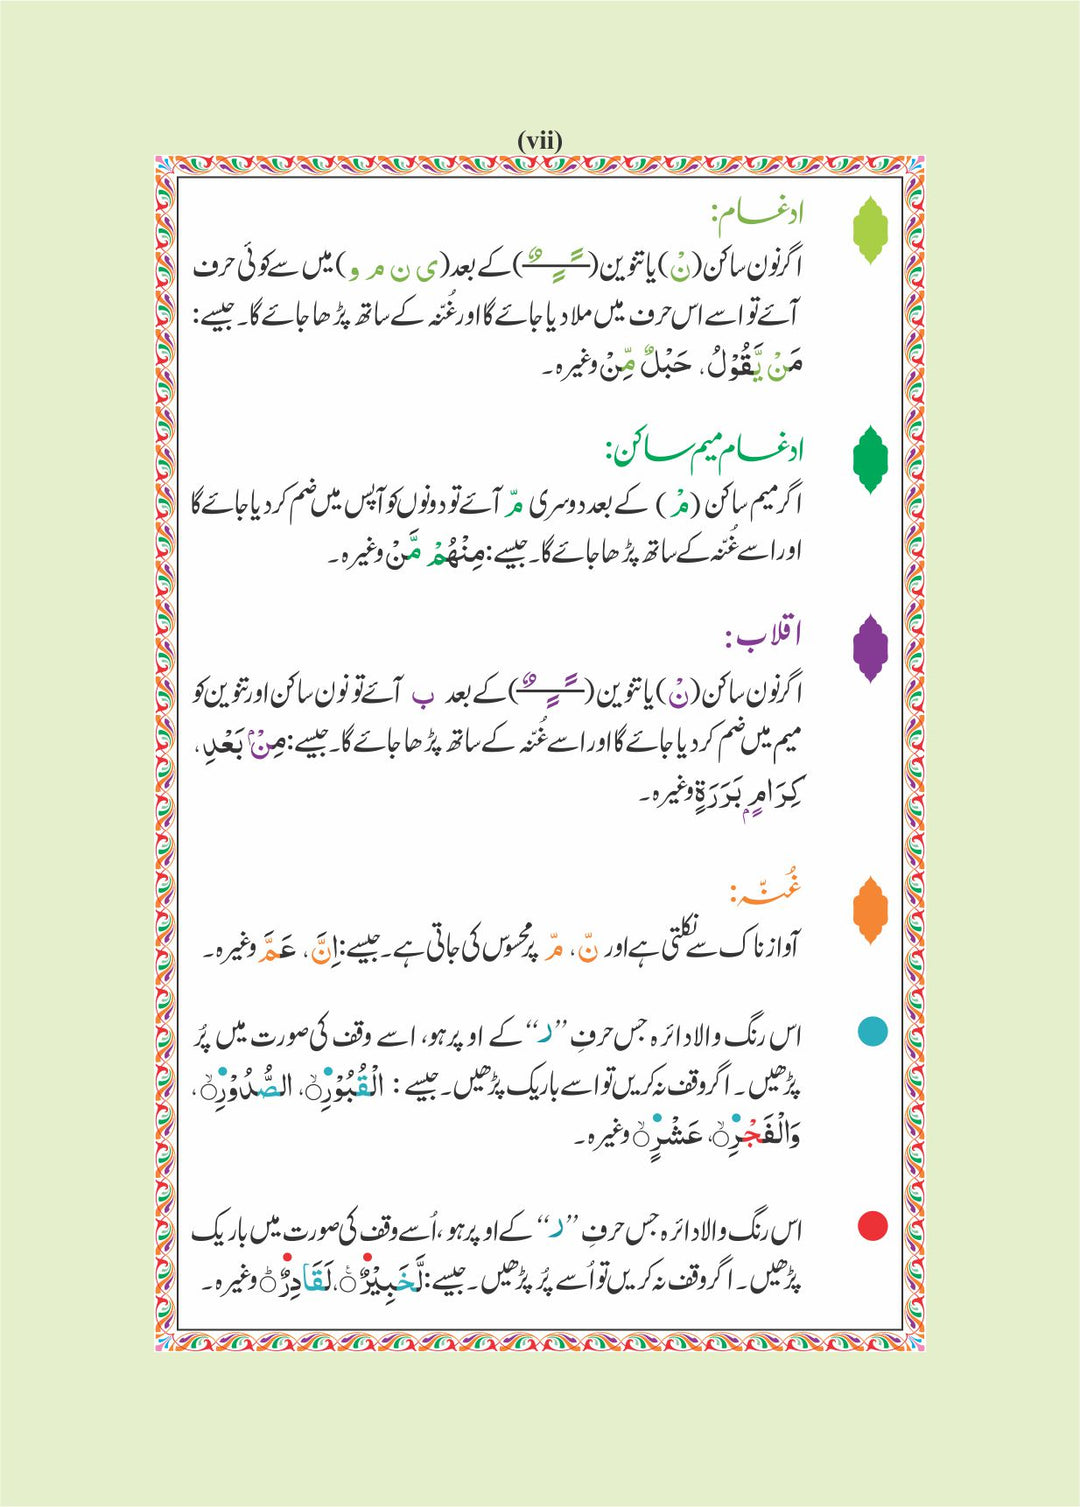 (vii)
ادغام:
اگر نون ساکن (نْ) یا تنوین (ـًـٍـٌ) کے بعد (ی ن م و) میں سے کوئی حرف
آئے تو اسے اس حرف میں ملا دیا جائے گا اور غُنّہ کے ساتھ پڑھا جائے گا۔ جیسے:
مَنْ يَّقُوْلُ، حَبْلٌ مِّنْ وغیرہ۔
ادغام میم ساکن:
اگر میم ساکن (مْ) کے بعد دوسری مّ آئے تو دونوں کو آپس میں ضم کر دیا جائے گا
اور اسے غُنّہ کے ساتھ پڑھا جائے گا۔ جیسے: مِنْهُمْ مَّنْ وغیرہ۔
اقلاب:
اگر نون ساکن (نْ) یا تنوین (ـًـٍـٌ) کے بعد ب آئے تو نون ساکن اور تنوین کو
میم میں ضم کر دیا جائے گا اور اسے غُنّہ کے ساتھ پڑھا جائے گا۔ جیسے: مِنْۢ بَعْدِ،
كِرَامٍۭ بَرَرَةٍ وغیرہ۔
غُنّہ:
آواز ناک سے نکلتی ہے اور نّ، مّ پر محسوس کی جاتی ہے۔ جیسے: اِنَّ، عَمَّ وغیرہ۔
اس رنگ والا دائرہ جس حرفِ ”ر“ کے اوپر ہو، اسے وقف کی صورت میں پُر
پڑھیں۔ اگر وقف نہ کریں تو اسے باریک پڑھیں۔ جیسے: الْقُبُوْرِۙ، الصُّدُوْرِۙ،
وَالْفَجْرِۙ، عَشْرٍۙ وغیرہ۔
اس رنگ والا دائرہ جس حرفِ ”ر“ کے اوپر ہو، اُسے وقف کی صورت میں باریک
پڑھیں۔ اگر وقف نہ کریں تو اُسے پُر پڑھیں۔ جیسے: لَّخَبِيْرٌۚ، لَقَادِرٌؕ وغیرہ۔